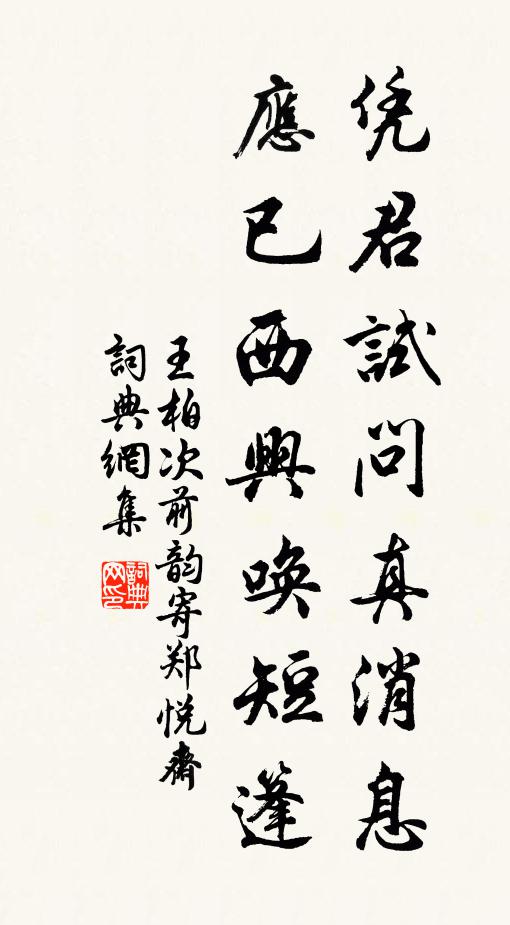 凭君試問真消息
應已西興唤短篷
王柏次前韵寄郑悦齋
詞典網集
詞典网印